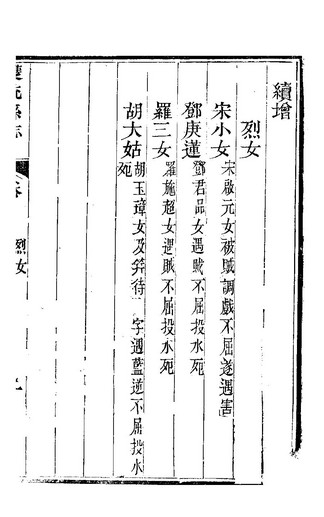 續增
烈女
宋小女 宋啟元女被賊調戲不屈遂遇害
鄧庚蓮 鄧君品女遇賊不屈投水死
羅三女 羅施超女遇賊不屈投水死
胡大姑 胡玉璋女及筓待字遇藍逆不屈投水
死
縣志
卷
烈女